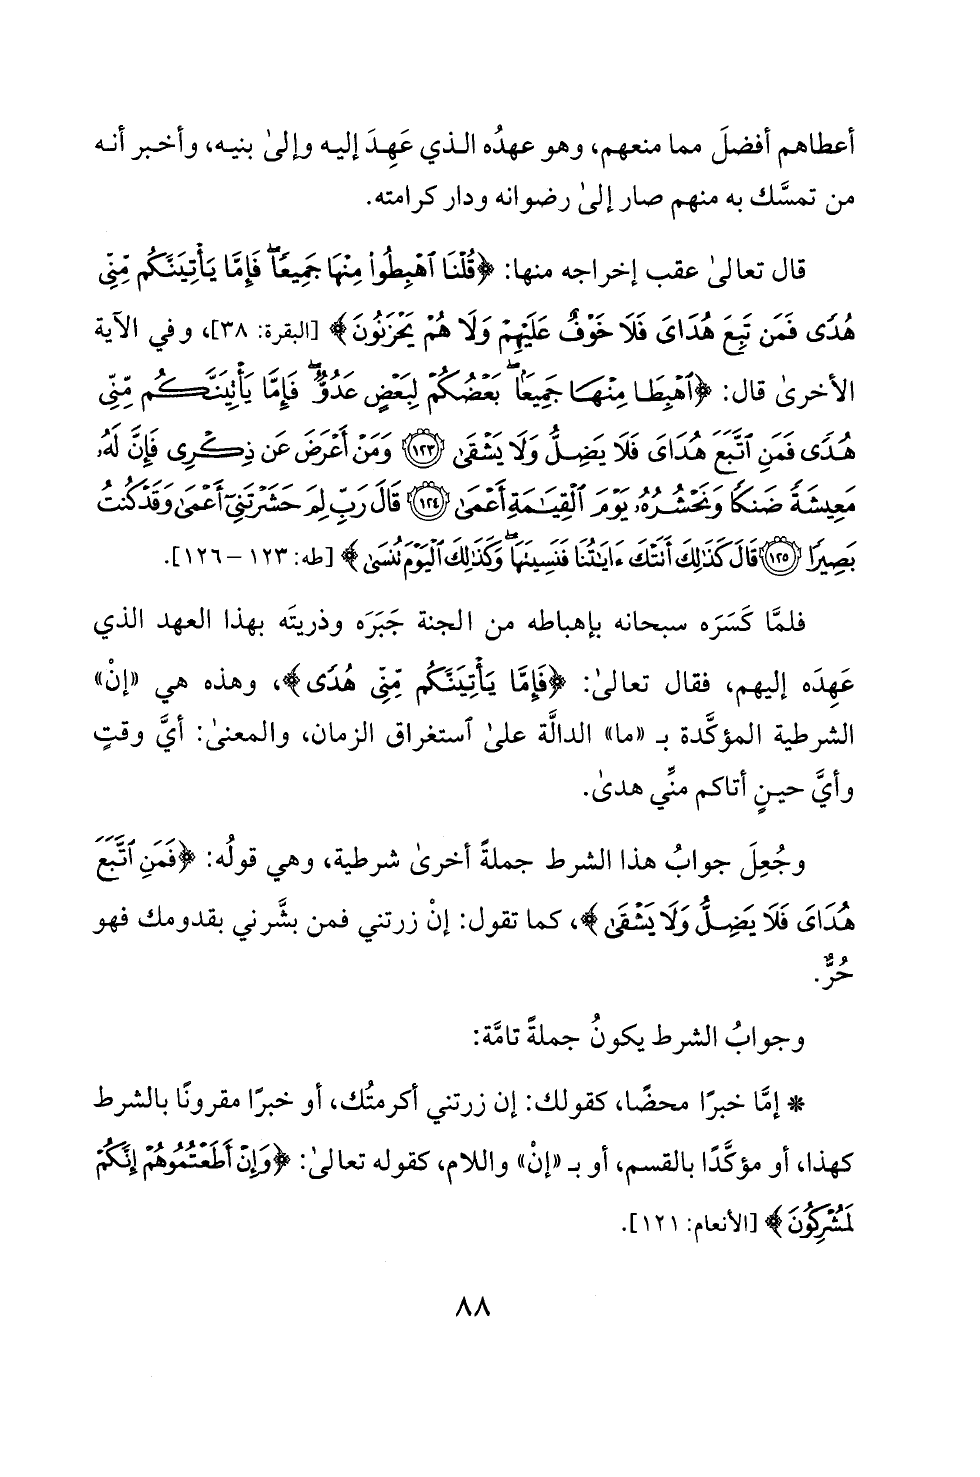 أعطاهم أفضلَ مما منعهم، وهو عهدُه الذي عَهِدَ إليه وإلىٰ بنيه، وأخبر أنه
من تمسَّك به منهم صار إلىٰ رضوانه ودار كرامته.
قال تعالىٰ عقب إخراجه منها: ﴿قُلْنَا ٱهْبِطُوا۟ مِنْهَا جَمِيعًا ۖ فَإِمَّا يَأْتِيَنَّكُم مِّنِّى
هُدًى فَمَن تَبِعَ هُدَاىَ فَلَا خَوْفٌ عَلَيْهِمْ وَلَا هُمْ يَحْزَنُونَ﴾ [البقرة: ٣٨]، وفي الآية
الأخرىٰ قال: ﴿ٱهْبِطَا مِنْهَا جَمِيعًۢا ۖ بَعْضُكُمْ لِبَعْضٍ عَدُوٌّ ۖ فَإِمَّا يَأْتِيَنَّكُم مِّنِّى
هُدًى فَمَنِ ٱتَّبَعَ هُدَاىَ فَلَا يَضِلُّ وَلَا يَشْقَىٰ ١٢٣ وَمَنْ أَعْرَضَ عَن ذِكْرِى فَإِنَّ لَهُۥ
مَعِيشَةً ضَنكًا وَنَحْشُرُهُۥ يَوْمَ ٱلْقِيَـٰمَةِ أَعْمَىٰ ١٢٤ قَالَ رَبِّ لِمَ حَشَرْتَنِىٓ أَعْمَىٰ وَقَدْ كُنتُ
بَصِيرًا ١٢٥ قَالَ كَذَٰلِكَ أَتَتْكَ ءَايَـٰتُنَا فَنَسِيتَهَا ۖ وَكَذَٰلِكَ ٱلْيَوْمَ تُنسَىٰ﴾ [طه: ١٢٣ – ١٢٦].
فلمَّا كَسَرَه سبحانه بإهباطه من الجنة جَبَرَه وذريتَه بهذا العهد الذي
عَهِدَه إليهم، فقال تعالىٰ: ﴿فَإِمَّا يَأْتِيَنَّكُم مِّنِّى هُدًى﴾، وهذه هي «إنْ»
الشرطية المؤكَّدة بـ «ما» الدالَّة علىٰ ٱستغراق الزمان، والمعنىٰ: أيَّ وقتٍ
وأيَّ حينٍ أتاكم منِّي هدىٰ.
وجُعِلَ جوابُ هذا الشرط جملةً أخرىٰ شرطية، وهي قولُه: ﴿فَمَنِ ٱتَّبَعَ
هُدَاىَ فَلَا يَضِلُّ وَلَا يَشْقَىٰ﴾، كما تقول: إنْ زرتني فمن بشَّرني بقدومك فهو
حُرٌّ.
وجوابُ الشرط يكونُ جملةً تامَّة:
* إمَّا خبرًا محضًا، كقولك: إن زرتني أكرمتُك، أو خبرًا مقرونًا بالشرط
كهذا، أو مؤكَّدًا بالقسم، أو بـ «إنْ» واللام، كقوله تعالىٰ: ﴿وَإِنْ أَطَعْتُمُوهُمْ إِنَّكُمْ
لَمُشْرِكُونَ﴾ [الأنعام: ١٢١].
٨٨